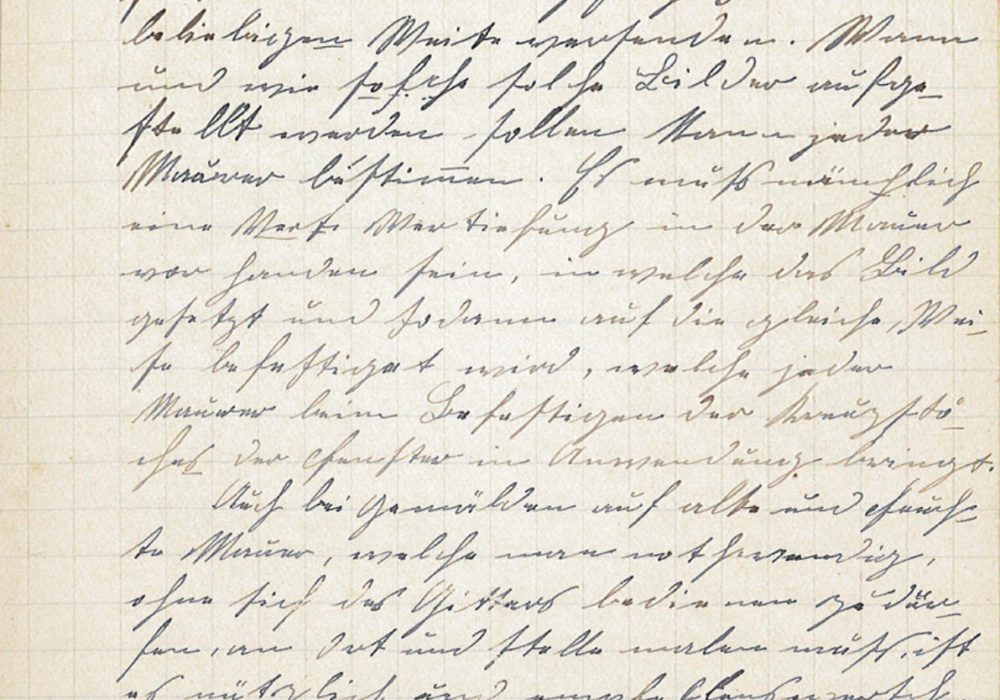 beliebigen Weite versenden. Wann
und wie solche Bilder aufge-
stellt werden sollen kann jeder
Maurer bestimmen. Es muß nämlich
eine Vertiefung in der Mauer
vor handen sein, in welche das Bild
gesetzt und sodann auf die gleiche, Wei-
se befestiget wird, welche jeder
Maurer beim Befestigen der Kreuzstö-
ckes der Fenster in Anwendung bringt.
Auch bei Gemälden auf alte und feuch-
te Mauer, welche man nothwendig,
ohne sich des Gitters bedienen zu dür-
fen, an Ort und Stelle malen muß, ist
es nützlich und